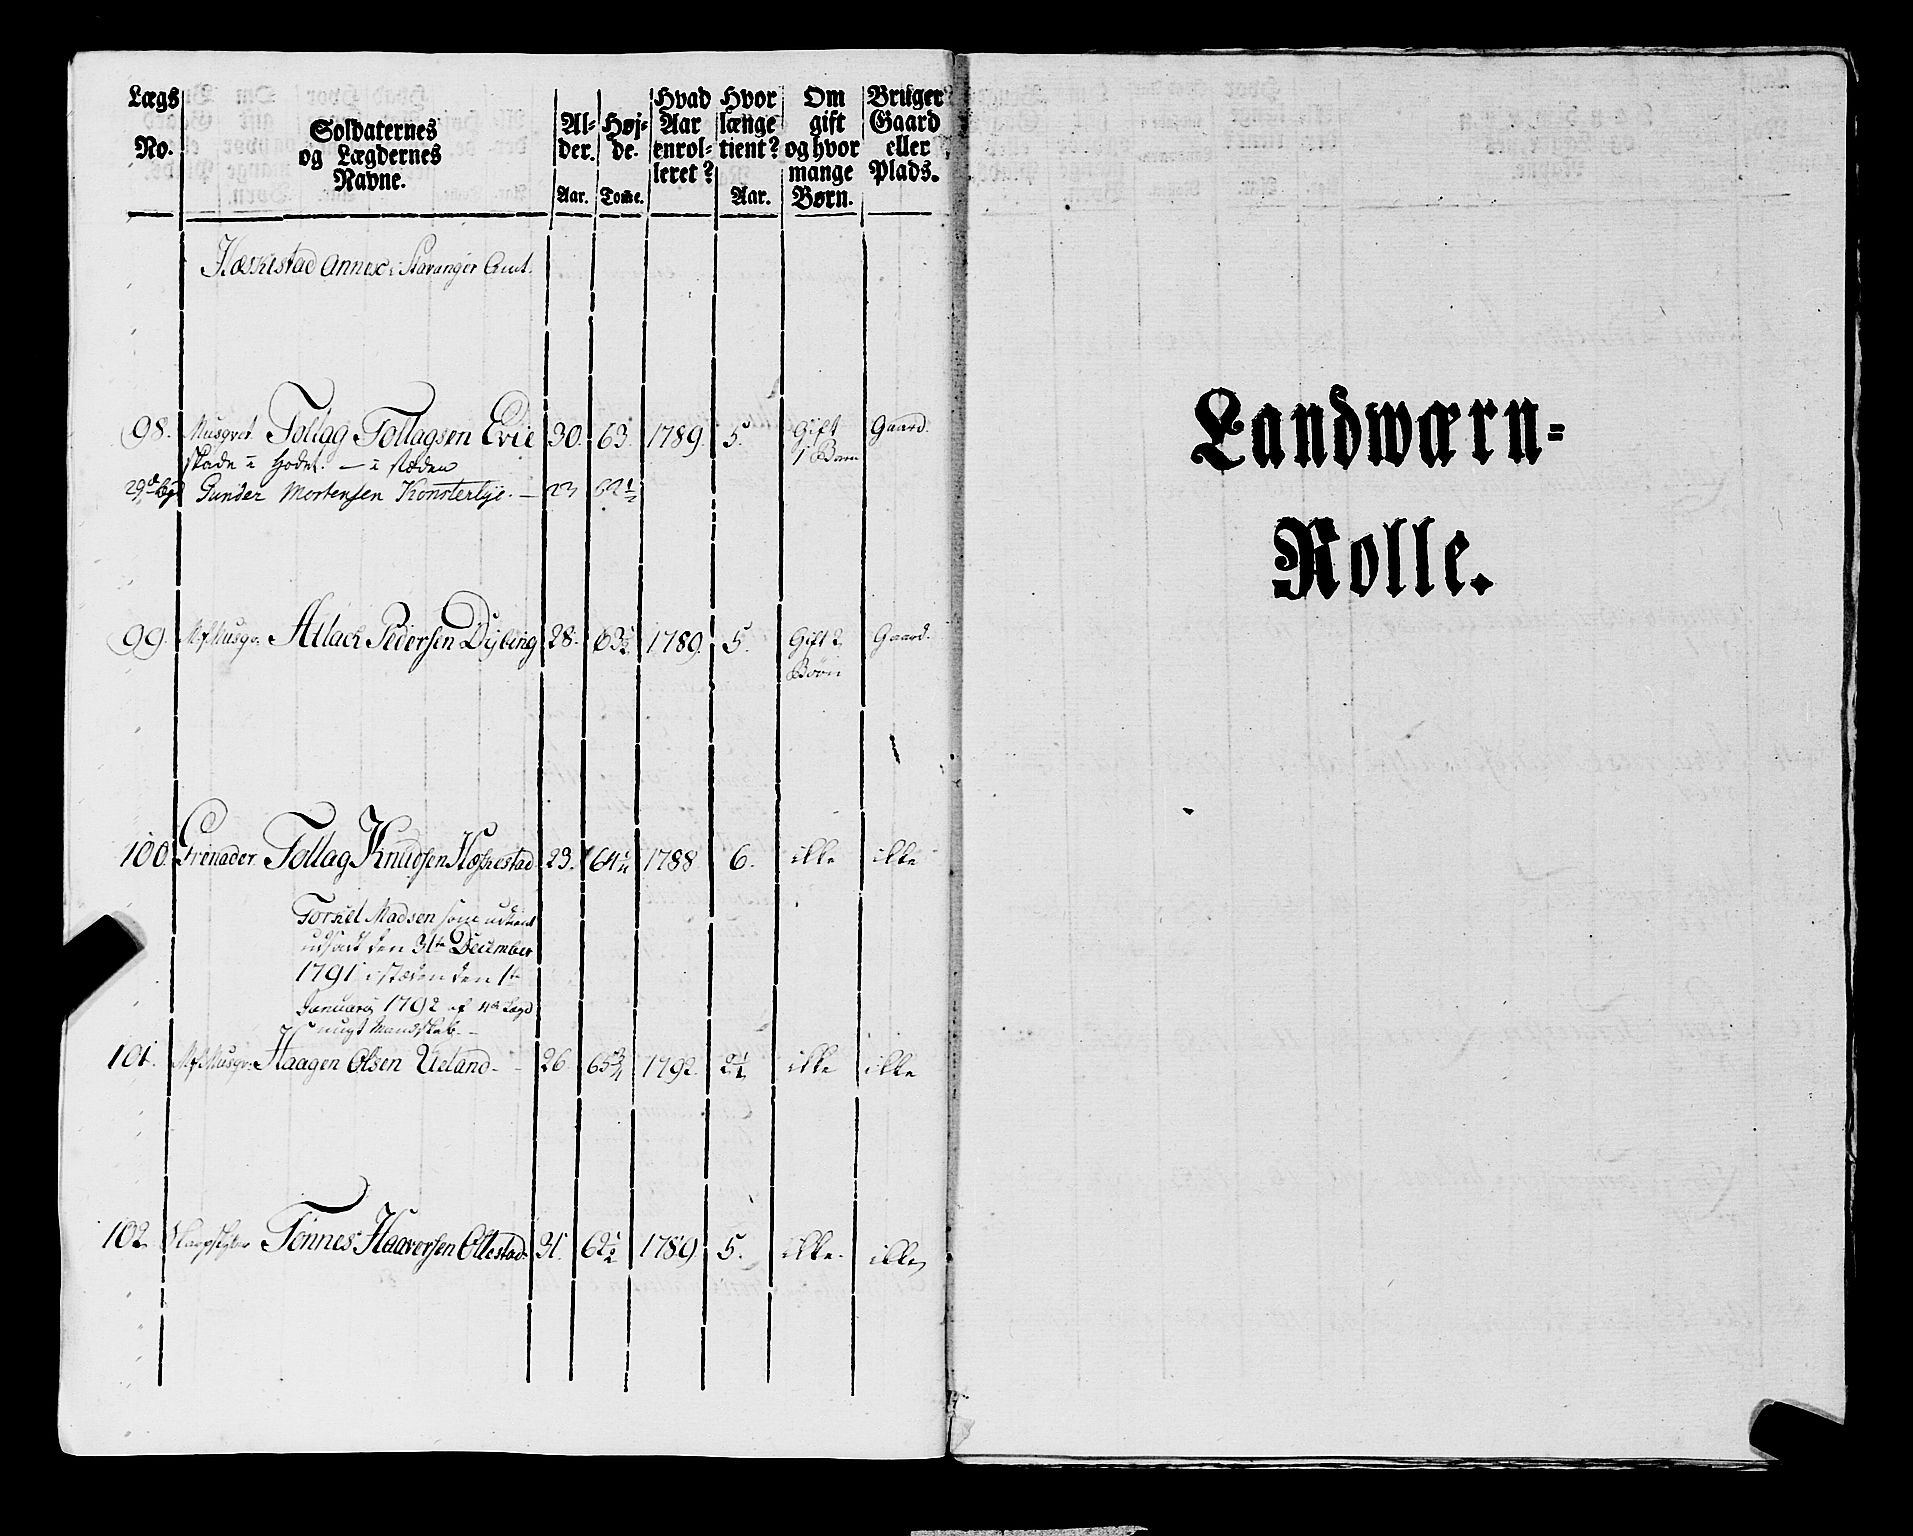 Lægs No. | Soldaternes og Lægdernes Navne. | Al-der. Aar. | Høj-de. Tome. | Hvad Aar enrol-leret? | Hvor længe tient? Aar. | Om gift og hvor mange Børn. | Bruger Gaard eller Plads.
Hæskestad Annex i Stavanger Amt.
98. Musqvet. Tollag Tollagsen Evie 30. 63. 1789. 5. Gift 1 Barn Gaard.
skade i Hodet. — i stæden
29de Lægd Gunder Mortensen Konsterlye. — 23 62½
99. Musqv. Atlach Pedersen Dybing 28. 63½ 1789. 5. Gift 2 Børn Gaard.
100. Grenader Tollag Knudsen Hæskestad 23. 64½ 1788 6. ikke ikke
Torkel Madsen som udtient
udsadt den 31te December
1791 i stæden den 1te
Januarij 1792 af 4de Lægd
nugt Mandskab. -
101. Musqv. Haagen Olsen Ueland - 26 65¾ 1792. 2½ ikke ikke
102. Skarpskytter Tønnes Haaversen Ollestad 31. 62½ 1789 5. ikke. ikke
Landwærn-
Rolle.